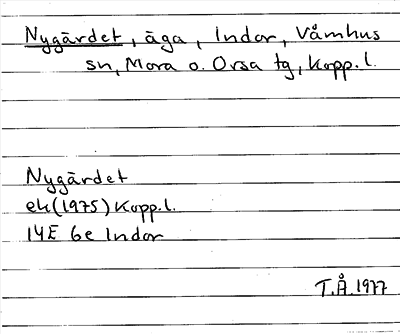 Nygärdet, äga, Indor, Våmhus
sn, Mora o. Orsa tg, Kopp.l.
Nygärdet
ek(1975) Kopp.l.
14E 6e Indor
T.Å.1977